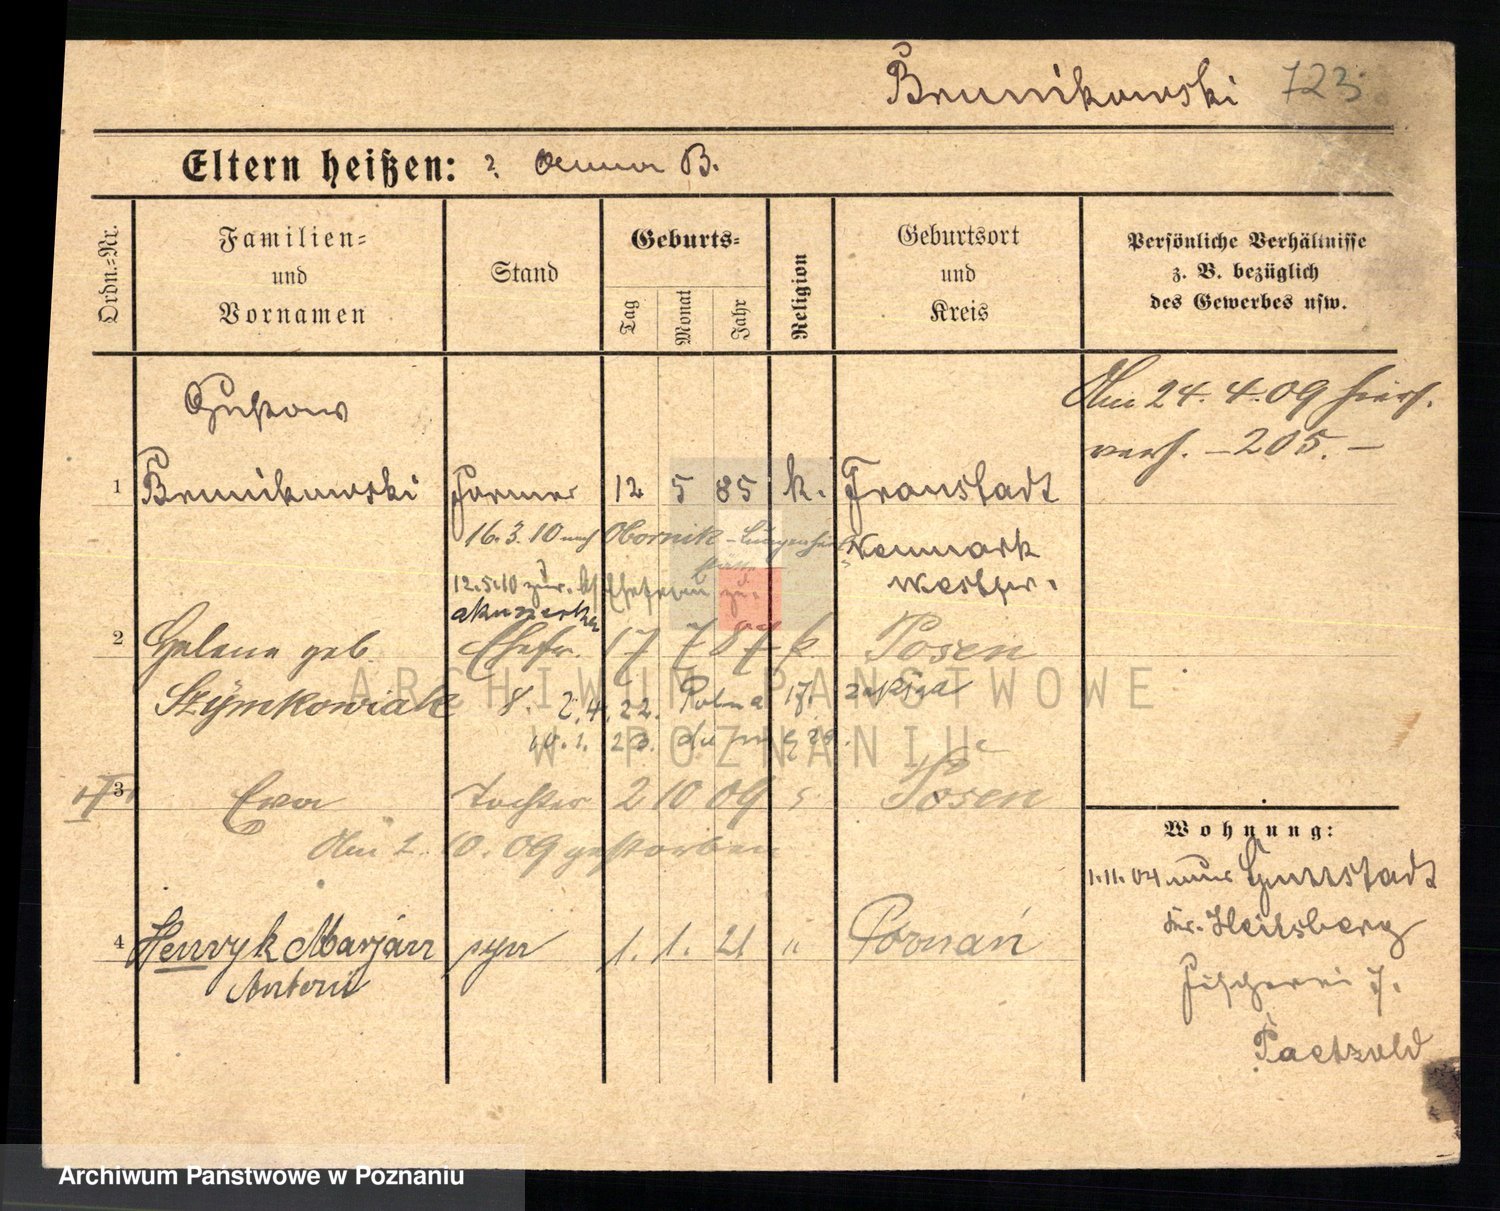 Brunikowski 723
Eltern heißen: ? B.
Ordn.=Nr.
Familien=
und
Vornamen
Stand
Geburts=
Tag
Monat
Jahr
Religion
Geburtsort
und
Kreis
Persönliche Verhältnisse
z. B. bezüglich
des Gewerbes usw.
Gustaw
Am 24. 4. 09
verh. – 205. –
1 Brunikowski Former 12 5 85 k. Fraustadt
16.3.10 nach Obornik
Neumark
Westpr.
12.5.10 zur.
akuszerka
2 Helene geb. Ehefr. 17 7 87 k Posen
Szymkowiak 8. 2.4.22. Polna 17.
10.1.23.
3 Eva Tochter 2 10 09 Posen
Am 2. 10. 09 gestorben
4 Henryk Marjan syn 1. 1. 21 " Poznań
Antoni
Wohnung:
1.11.04 Guttstadt
Kr. Heilsberg
Fischerei 7.
Paetzold
ARCHIWUM PAŃSTWOWE
W POZNANIU
Archiwum Państwowe w Poznaniu